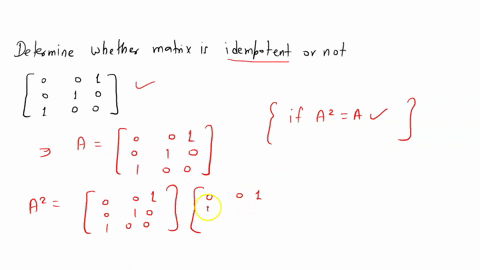 Determine whether matrix is idempotent or not
[ 0 0 1
0 1 0
1 0 0 ] ✓
{ if A² = A ✓ }
⇒ A = [ 0 0 1
0 1 0
1 0 0 ]
A² = [ 0 0 1
0 1 0
1 0 0 ] [ 0 0 1